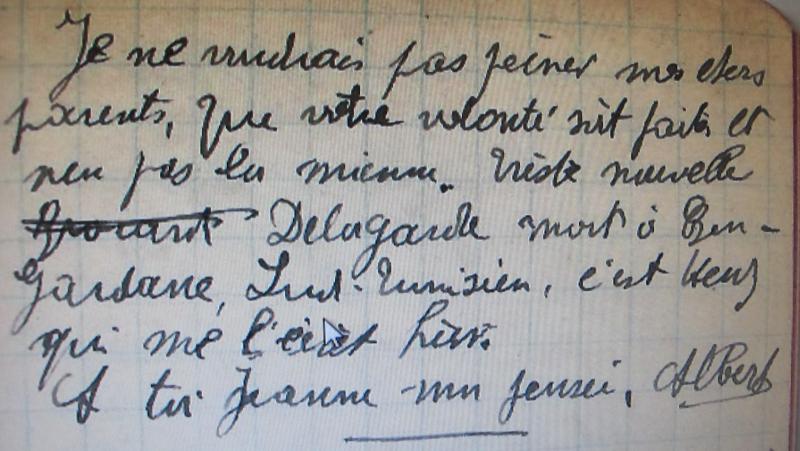 Je ne voudrais pas peiner mes chers
parents, que votre volonté soit faite et
non pas la mienne. Triste nouvelle
Delagarde mort à Ben-
Gardane, Sud-Tunisien, c'est
qui me l'écrit hier.
A toi Jeanne mon pensée, Albert